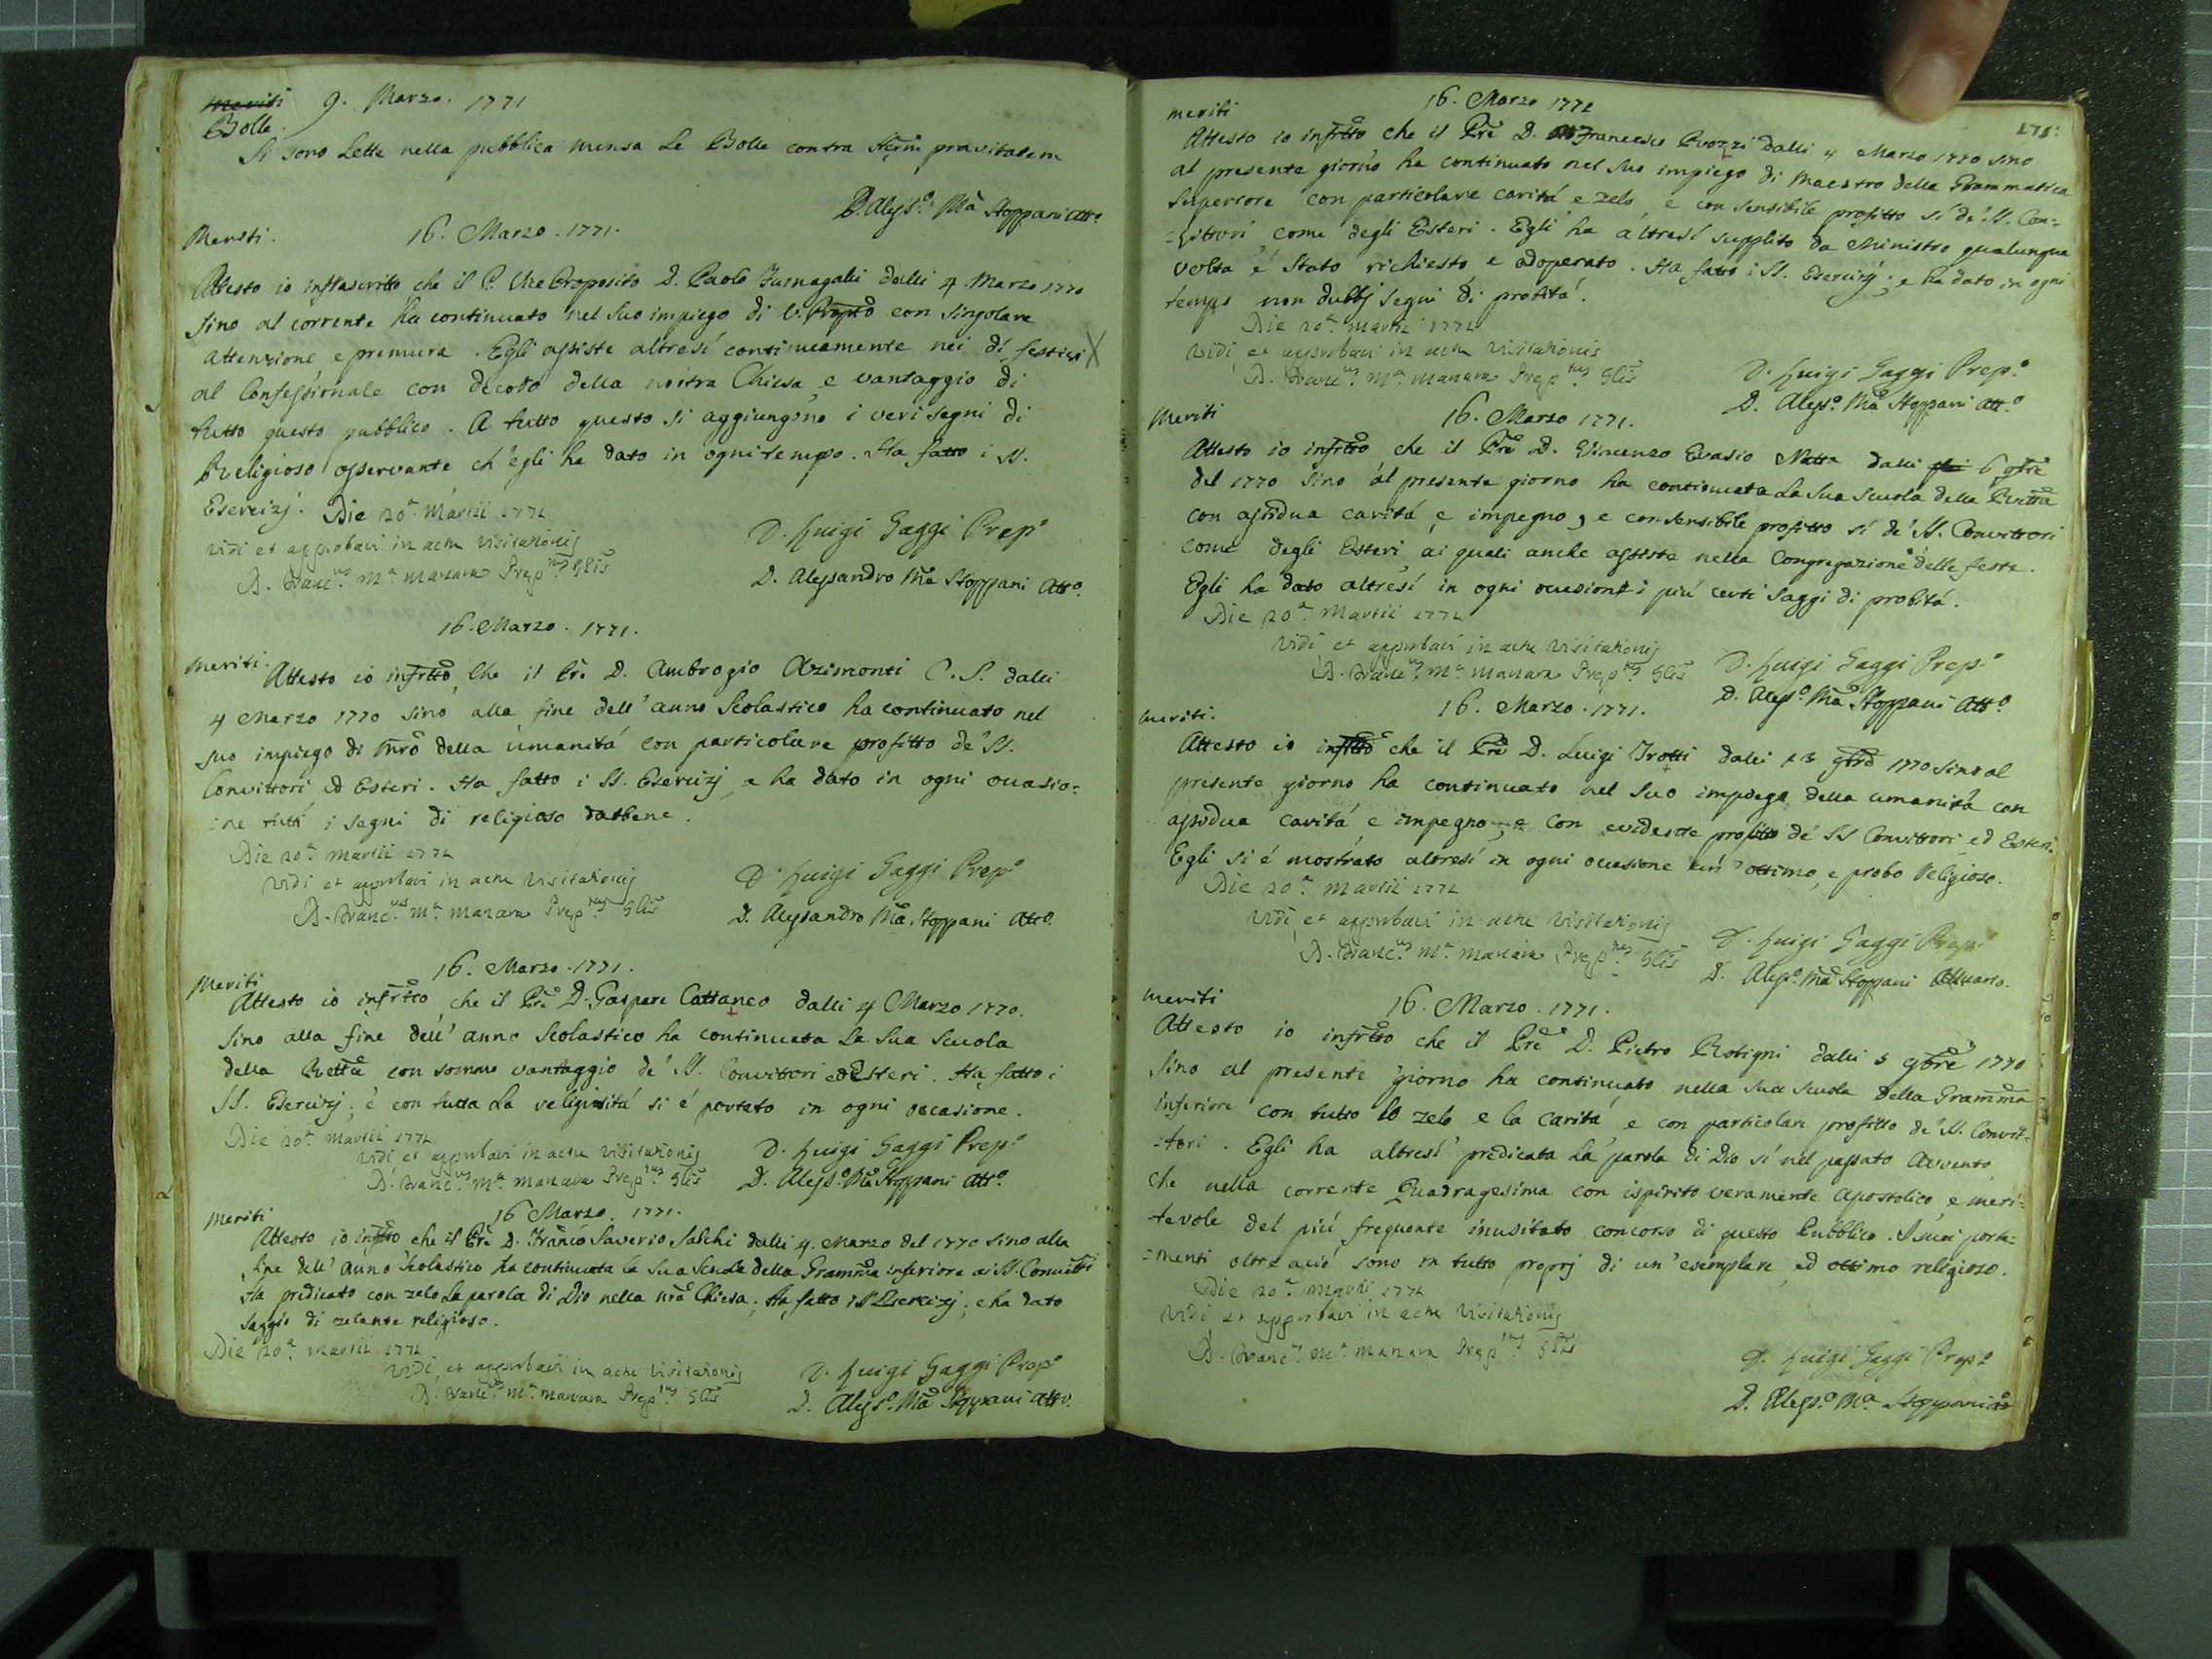 meriti 9. Marzo. 1771
Bolle.
Si sono Lette nella pubblica mensa Le Bolle contra pravitatem
D. Aless.o Ma Stoppani Att.o
Meriti. 16. Marzo. 1771.
Attesto io infrascritto che il P. Vice Proposito D. Paolo Fumagalli dalli 4 Marzo 1770
sino al corrente ha continuato nel suo impiego di V. Prepto con singolare
attenzione e premura. Egli assiste altresí continuamente nei dí festivi X
al Confessionale con decoro della nostra Chiesa, e vantaggio di
tutto questo pubblico. A tutto questo si aggiungono i veri segni di
Religioso osservante ch'egli ha dato in ogni tempo. Ha fatto i SS.
Esercizj. Die 20a Martii 1772
vidi et approbavi in actu visitationis
D. Franc.us Ma Manara Prep.tus Glis
D. Luigi Gaggi Prep.o
D. Alessandro Ma Stoppani Att.o
16. Marzo. 1771.
meriti. Attesto io infrtto, che il Pre D. Ambrogio Azimonti C. S. dalli
4 Marzo 1770 sino alla fine dell'anno Scolastico ha continuato nel
suo impiego di Mro della umanitá con particolare profitto de' SS.
Convittori ed Esteri. Ha fatto i SS. Esercizj, e ha dato in ogni occasio=
=ne tutti i segni di religioso dabbene.
Die 20a Martii 1772
vidi et approbavi in actu visitationis
D. Franc.us Ma Manara Prep.tus Glis
D. Luigi Gaggi Prep.o
D. Alessandro Ma Stoppani Att.o
16. Marzo. 1771.
Meriti
Attesto io infrtto, che il Pre D. Gaspare Cattaneo dalli 4 Marzo 1770.
sino alla fine dell'anno Scolastico ha continuata la sua scuola
della Rettca con sommo vantaggio de' SS. Convittori ed Esteri. Ha fatto i
SS. Esercizj; e con tutta la religiositá si é portato in ogni occasione.
Die 20a Martii 1772
vidi et approbavi in actu visitationis
D. Franc.us Ma Manara Prep.tus Glis
D. Luigi Gaggi Prep.o
D. Aless.o Ma Stoppani Att.o
16 Marzo. 1771.
meriti
Attesto io infrtto che il Pre D. Franco Saverio Salchi dalli 4. Marzo del 1770 sino alla
fine dell'anno Scolastico ha continuata la sua Scuola della Gramma inferiore ai SS. Convitti
Ha predicato con zelo la parola di Dio nella nra Chiesa; Ha fatto i SS Esercizj; e ha dato
saggio di zelante religioso.
Die 20a Martii 1772
vidi et approbavi in actu visitationis
D. Franc.us Ma Manara Prep.tus Glis
D. Luigi Gaggi Prep.o
D. Aless.o Ma Stoppani Att.o
175.
meriti 16. Marzo 1771
Attesto io infrtto che il Pre D. Francesco Rvozzi dalli 4 Marzo 1770 sino
al presente giorno ha continuato nel suo impiego di Maestro della Grammatica
superiore con particolare caritá e zelo, e con sensibile profitto sí de' SS. Con=
=vittori come degli Esteri. Egli ha altresí supplito da Ministro qualunque
volta é stato richiesto e adoperato. Ha fatto i SS. Esercizj; e ha dato in ogni
tempo non dubbj segni di probitá.
Die 20a Martii 1772
vidi et approbavi in actu visitationis
D. Franc.us Ma Manara Prep.tus Glis
D. Luigi Gaggi Prep.o
D. Aless.o Ma Stoppani Att.o
Meriti 16. Marzo 1771.
Attesto io infrtto che il Pre D. Vincenzo Evasio Natta dalli 6 9bre
del 1770 sino al presente giorno ha continuata la sua scuola della Rettca
con assidua caritá e impegno, e con sensibile profitto sí de' SS. Convittori
come degli Esteri ai quali anche assiste nella Congregazione delle feste.
Egli ha dato altresí in ogni occasione i piú certi saggi di probitá.
Die 20a Martii 1772
vidi et approbavi in actu visitationis
D. Franc.us Ma Manara Prep.tus Glis
D. Luigi Gaggi Prep.o
D. Aless.o Ma Stoppani Att.o
meriti. 16. Marzo. 1771.
Attesto io infrtto che il Pre D. Luigi Trotti dalli 13 9bre 1770 sino al
presente giorno ha continuato nel suo impiego della umanitá con
assidua caritá e impegno, e con evidente profitto de' SS Convittori ed Esteri.
Egli si é mostrato altresí in ogni occasione un' ottimo, e probo Religioso.
Die 20a Martii 1772
vidi et approbavi in actu visitationis
D. Franc.us Ma Manara Prep.tus Glis
D. Luigi Gaggi Prep.o
D. Aless.o Ma Stoppani Attuario.
meriti 16. Marzo. 1771.
Attesto io infrtto che il Pre D. Pietro Rotigni dalli 5 9bre 1770
sino al presente giorno ha continuato nella sua scuola della Gramma
inferiore con tutto lo zelo e la caritá, e con particolare profitto de' SS. Convit=
=tori. Egli ha altresí predicata la parola di Dio sí nel passato Avvento,
che nella corrente Quadragesima con ispirito veramente apostolico, e meri=
=tevole del piú frequente inusitato concorso di questo Pubblico. I suoi porta=
=menti oltre acció sono in tutto proprj di un'esemplare, ed ottimo religioso.
Die 20a Martii 1772
vidi et approbavi in actu visitationis
D. Franc.us Ma Manara Prep.tus Glis
D. Luigi Gaggi Prep.o
D. Aless.o Ma Stoppani Att.o